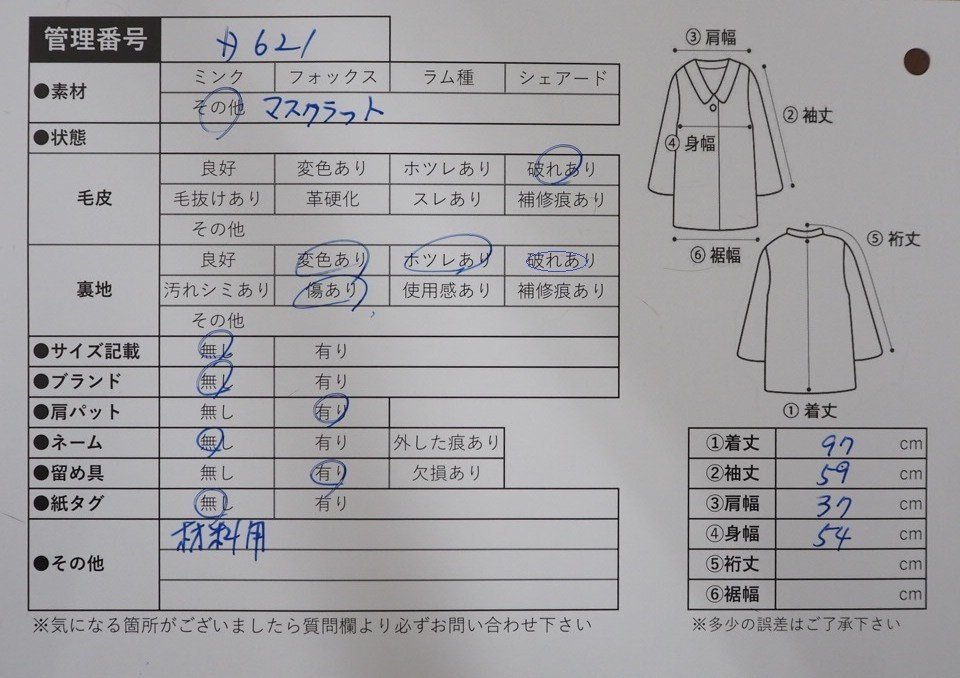 管理番号 カ621
●素材 ミンク フォックス ラム種 シェアード
その他 マスクラット
●状態
毛皮 良好 変色あり ホツレあり 破れあり
毛抜けあり 革硬化 スレあり 補修痕あり
その他
裏地 良好 変色あり ホツレあり 破れあり
汚れシミあり 傷あり 使用感あり 補修痕あり
その他
●サイズ記載 無し 有り
●ブランド 無し 有り
●肩パット 無し 有り
●ネーム 無し 有り 外した痕あり
●留め具 無し 有り 欠損あり
●紙タグ 無し 有り
●その他 材料用
※気になる箇所がございましたら質問欄より必ずお問い合わせ下さい
③肩幅
②袖丈
④身幅
⑥裾幅
⑤裄丈
①着丈
①着丈 97 cm
②袖丈 59 cm
③肩幅 37 cm
④身幅 54 cm
⑤裄丈 cm
⑥裾幅 cm
※多少の誤差はご了承下さい